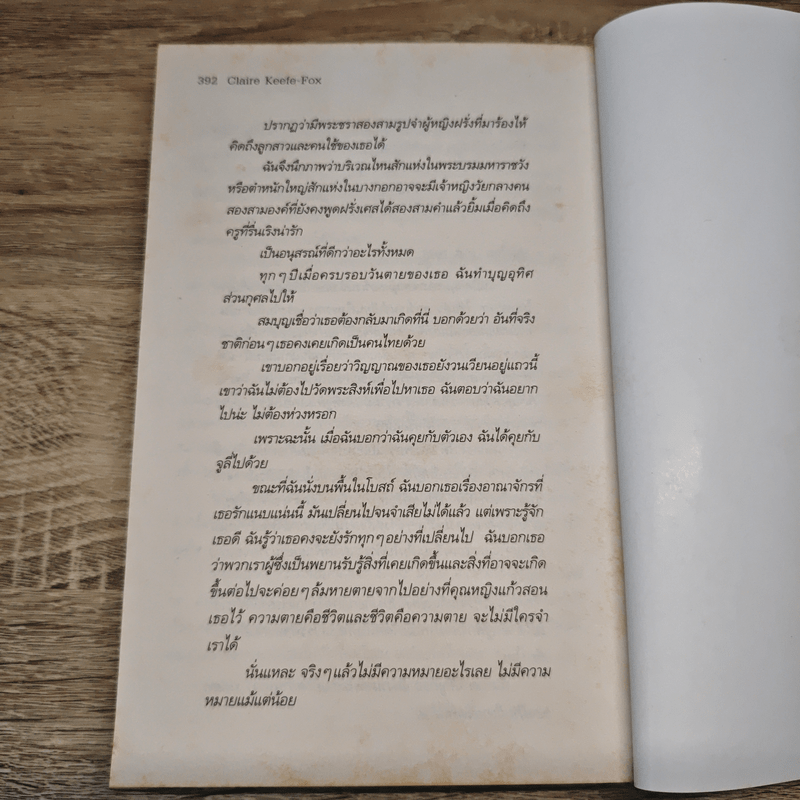 392 Claire Keefe-Fox
ปรากฏว่ามีพระชราสองสามรูปจำผู้หญิงฝรั่งที่มาร้องไห้
คิดถึงลูกสาวและคนใช้ของเธอได้
ฉันจึงนึกภาพว่าบริเวณไหนสักแห่งในพระบรมมหาราชวัง
หรือตำหนักใหญ่สักแห่งในบางกอกอาจจะมีเจ้าหญิงวัยกลางคน
สองสามองค์ที่ยังคงพูดฝรั่งเศสได้สองสามคำแล้วยิ้มเมื่อคิดถึง
ครูที่รื่นเริงน่ารัก
เป็นอนุสรณ์ที่ดีกว่าอะไรทั้งหมด
ทุกๆปีเมื่อครบรอบวันตายของเธอ ฉันทำบุญอุทิศ
ส่วนกุศลไปให้
สมบุญเชื่อว่าเธอต้องกลับมาเกิดที่นี่ บอกด้วยว่า อันที่จริง
ชาติก่อนๆเธอคงเคยเกิดเป็นคนไทยด้วย
เขาบอกอยู่เรื่อยว่าวิญญาณของเธอยังวนเวียนอยู่แถวนี้
เขาว่าฉันไม่ต้องไปวัดพระสิงห์เพื่อไปหาเธอ ฉันตอบว่าฉันอยาก
ไปน่ะ ไม่ต้องห่วงหรอก
เพราะฉะนั้น เมื่อฉันบอกว่าฉันคุยกับตัวเอง ฉันได้คุยกับ
จูลี่ไปด้วย
ขณะที่ฉันนั่งบนพื้นในโบสถ์ ฉันบอกเธอเรื่องอาณาจักรที่
เธอรักแนบแน่นนี้ มันเปลี่ยนไปจนจำเสียไม่ได้แล้ว แต่เพราะรู้จัก
เธอดี ฉันรู้ว่าเธอคงจะยังรักทุกๆอย่างที่เปลี่ยนไป ฉันบอกเธอ
ว่าพวกเราผู้ซึ่งเป็นพยานรับรู้สิ่งที่เคยเกิดขึ้นและสิ่งที่อาจจะเกิด
ขึ้นต่อไปจะค่อยๆล้มหายตายจากไปอย่างที่คุณหญิงแก้วสอน
เธอไว้ ความตายคือชีวิตและชีวิตคือความตาย จะไม่มีใครจำ
เราได้
นั่นแหละ จริงๆแล้วไม่มีความหมายอะไรเลย ไม่มีความ
หมายแม้แต่น้อย